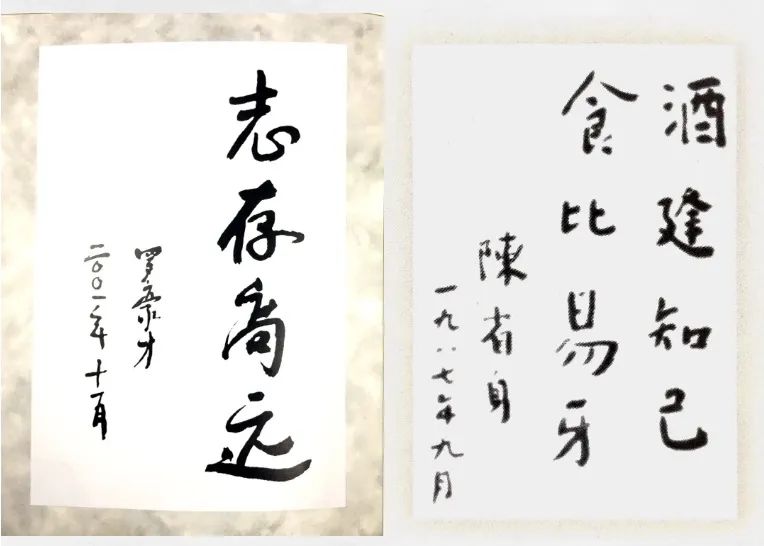 志存高远
罗豪才
二〇〇一年十一月
酒逢知己
食比易牙
陳省身
一九八七年九月